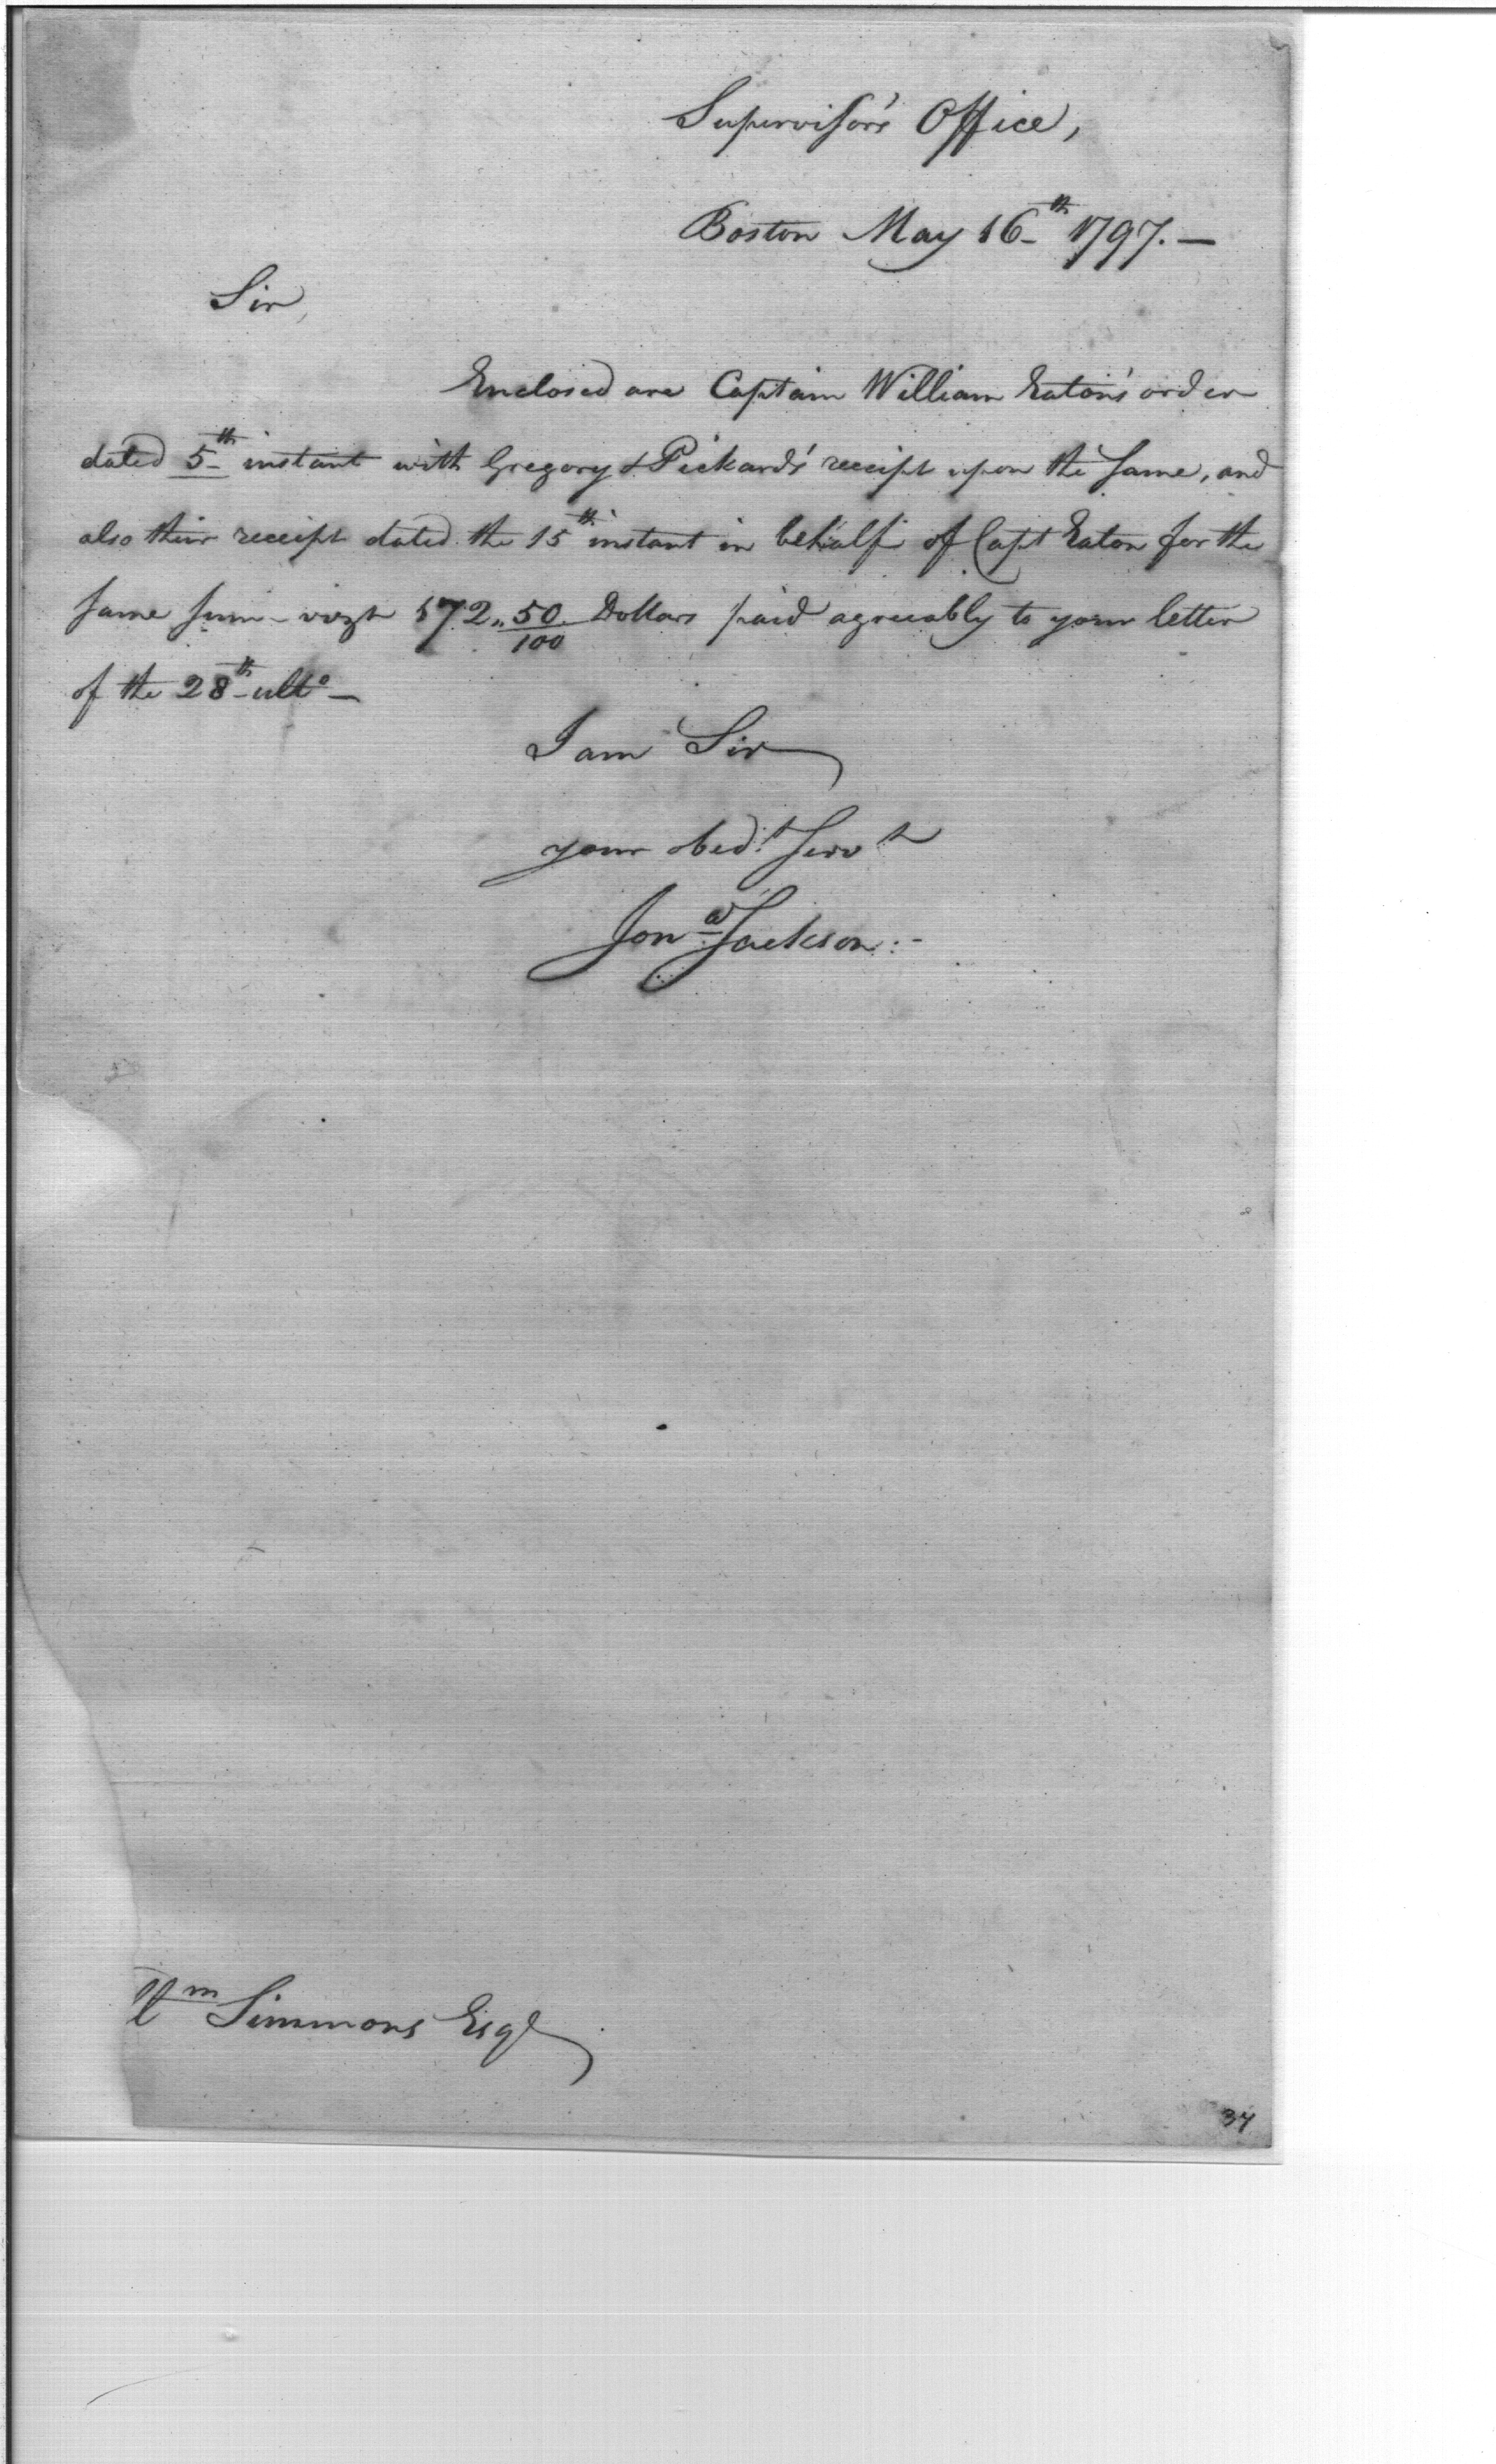 Supervisor's Office,
Boston May 16th 1797.—
Sir,
Enclosed are Captain William Eaton's order
dated 5th instant with Gregory & Pickard's receipt upon the same, and
also their receipt dated the 15th instant in behalf of Capt Eaton for the
same sum - vizt 172..50/100 Dollars paid agreeably to your letter
of the 28th ulto—
I am Sir
your obedt servt
Jona Jackson.-
Wm Simmons Esqr
37